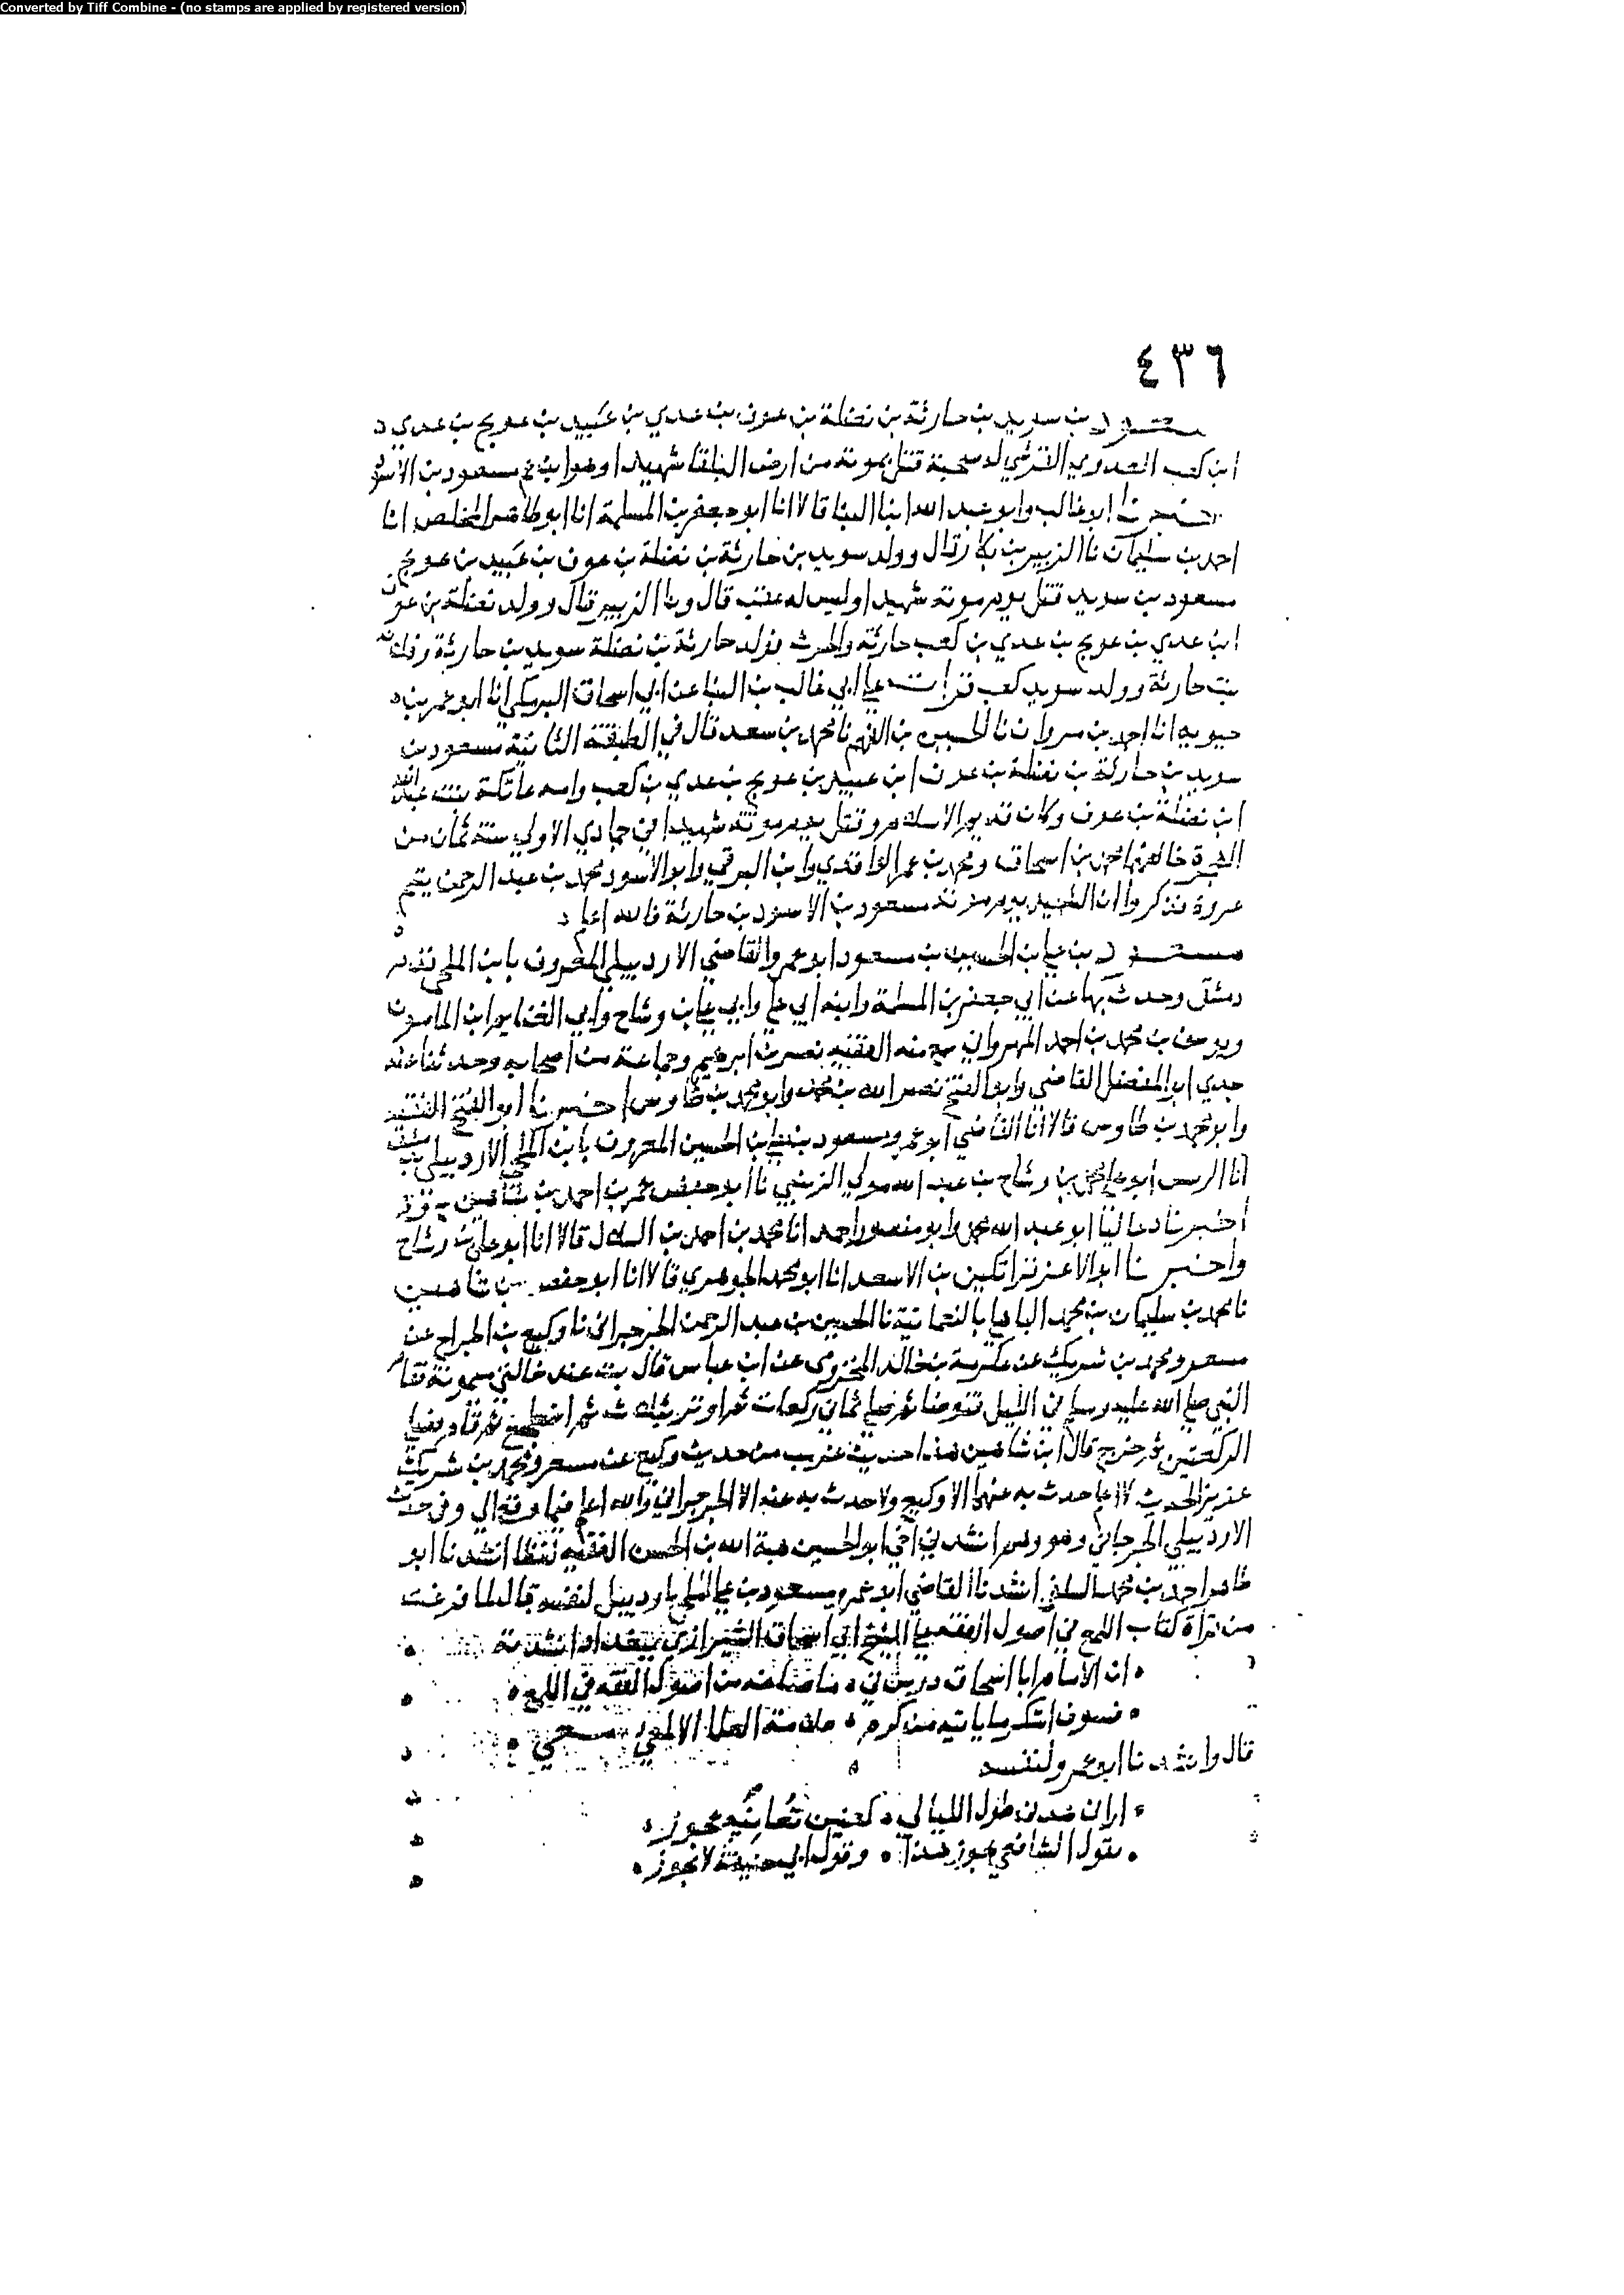 Converted by Tiff Combine - (no stamps are applied by registered version)
٤٣٦
مسعود بن سويد بن حارثة بن نضلة بن عوف بن عدي بن عبيد بن عويج بن عدي
ابن كعب العدوي القرشي له صحبة قتل بموته من ارض البلقا شهيدا وهو ابن عم مسعود بن الاسود
اخبرنا ابو غالب وابو عبد الله ابنا البنا قالا انا ابو جعفر بن المسلمة انا ابو طاهر المخلص انا
احمد بن سليمان نا الزبير بن بكار قال وولد سويد بن حارثة بن نضلة بن عوف بن عبيد بن عويج
مسعود بن سويد قتل يوم موته شهيدا وليس له عقب قال ونا الزبير قال وولد نضلة بن عوف
ابن عدي بن عويج بن عدي بن كعب حارثة والحرث فولد حارثة بن نضلة سويد بن حارثة
بنت حارثة وولد سويد كعب قرات علي ابي غالب بن البنا عن ابي اسحاق البرمكي انا ابو عمر بن
حيويه انا احمد بن معروف نا الحسين بن الفهم نا محمد بن سعد قال في الطبقة الثانية مسعود بن
سويد بن حارثة بن نضلة بن عوف ابن عبيد بن عويج بن عدي بن كعب وامه عاتكة بنت عبد الله
ابن نضلة بن عوف وكان قديم الاسلام وقتل يوم موته شهيدا في جمادي الاولي سنة ثمان من
الهجرة خالفه محمد بن اسحاق ومحمد بن عمر الواقدي وابن البرقي وابو الاسود محمد بن عبد الرحمن يتيم
عروة فذكروا ان الشهيد يوم موته مسعود بن الاسود بن حارثة فالله اعلم
مسعود بن علي بن الحسين بن مسعود ابو عمرو القاضي الاردبيلي المعروف بابن الملحي قدم
دمشق وحدث بها عن ابي جعفر بن المسلمة وابنه ابي علي وابي علي بن وشاح وابي الغنايم ابن المامون
ويوسف بن محمد بن احمد المهرواني سمع منه الفقيه نصر بن ابرهيم وجماعة من اصحابه وحدثنا عنه
جدي ابو المفضل القاضي وابو الفتح نصر الله بن محمد وابو محمد بن طاوس اخبرنا ابو الفتح الفقيه
وابو محمد بن طاوس قالا انا القاضي ابو عمرو مسعود بن علي بن الحسين المعروف بابن الملحي الاردبيلي بدمشق
انا الرييس ابو علي بن وشاح بن عبد الله مولي الزينبي نا ابو حفص عمر بن احمد بن شاهين
اخبرنا عاليا ابو عبد الله محمد وابو منصور احمد انا محمد بن احمد بن السلال قالا انا ابو علي بن وشاح
واخبرنا ابو الاعز قراتكين بن الاسعد انا ابو محمد الجوهري قالا انا ابو حفص بن شاهين
نا محمد بن سليمان بن محمد الباهلي بالنعمانية نا الحسين بن عبد الرحمن الجرجراني نا وكيع بن الجراح عن
مسعر ومحمد بن شريك عن عكرمة بن خالد المخزومي عن ابن عباس قال بت عند خالتي ميمونة فقام
النبي صلي الله عليه وسلم من الليل فتوضا ثم صلي ثمان ركعات ثم اوتر بثلاث ثم اضطجع ثم قام فصلي
الركعتين ثم خرج قال ابن شاهين هذا حديث غريب من حديث وكيع عن مسعر ومحمد بن شريك
عزيز الحديث لا اعلم حدث به عنهما الا وكيع ولا حدث به عنه الا الجرجراني والله اعلم فيما وقع الي وفي حديث
الاردبيلي الجرجاني وهو وهم انشدني اخي ابو الحسين هبة الله بن الحسن الفقيه لفظا انشدنا ابو
طاهر احمد بن محمد السلفي انشدنا القاضي ابو عمرو مسعود بن علي الملحي باردبيل لنفسه قال لما فرغت
من قراة كتاب اللمع في اصول الفقه علي الشيخ ابي اسحاق الشيرازي ببغداد انشدته
ان الامام ابا اسحاق درس لي ما صنفه من اصول الفقه في اللمع
فسوف اشكر ما ياتيه من كرم
قال وانشدنا ابو عمرو لنفسه
اران ضدين طول الليالي كعنين تعانقه عجوز
يقول الشافعي يجوز هذا وقول ابي حنيفة لا يجوز